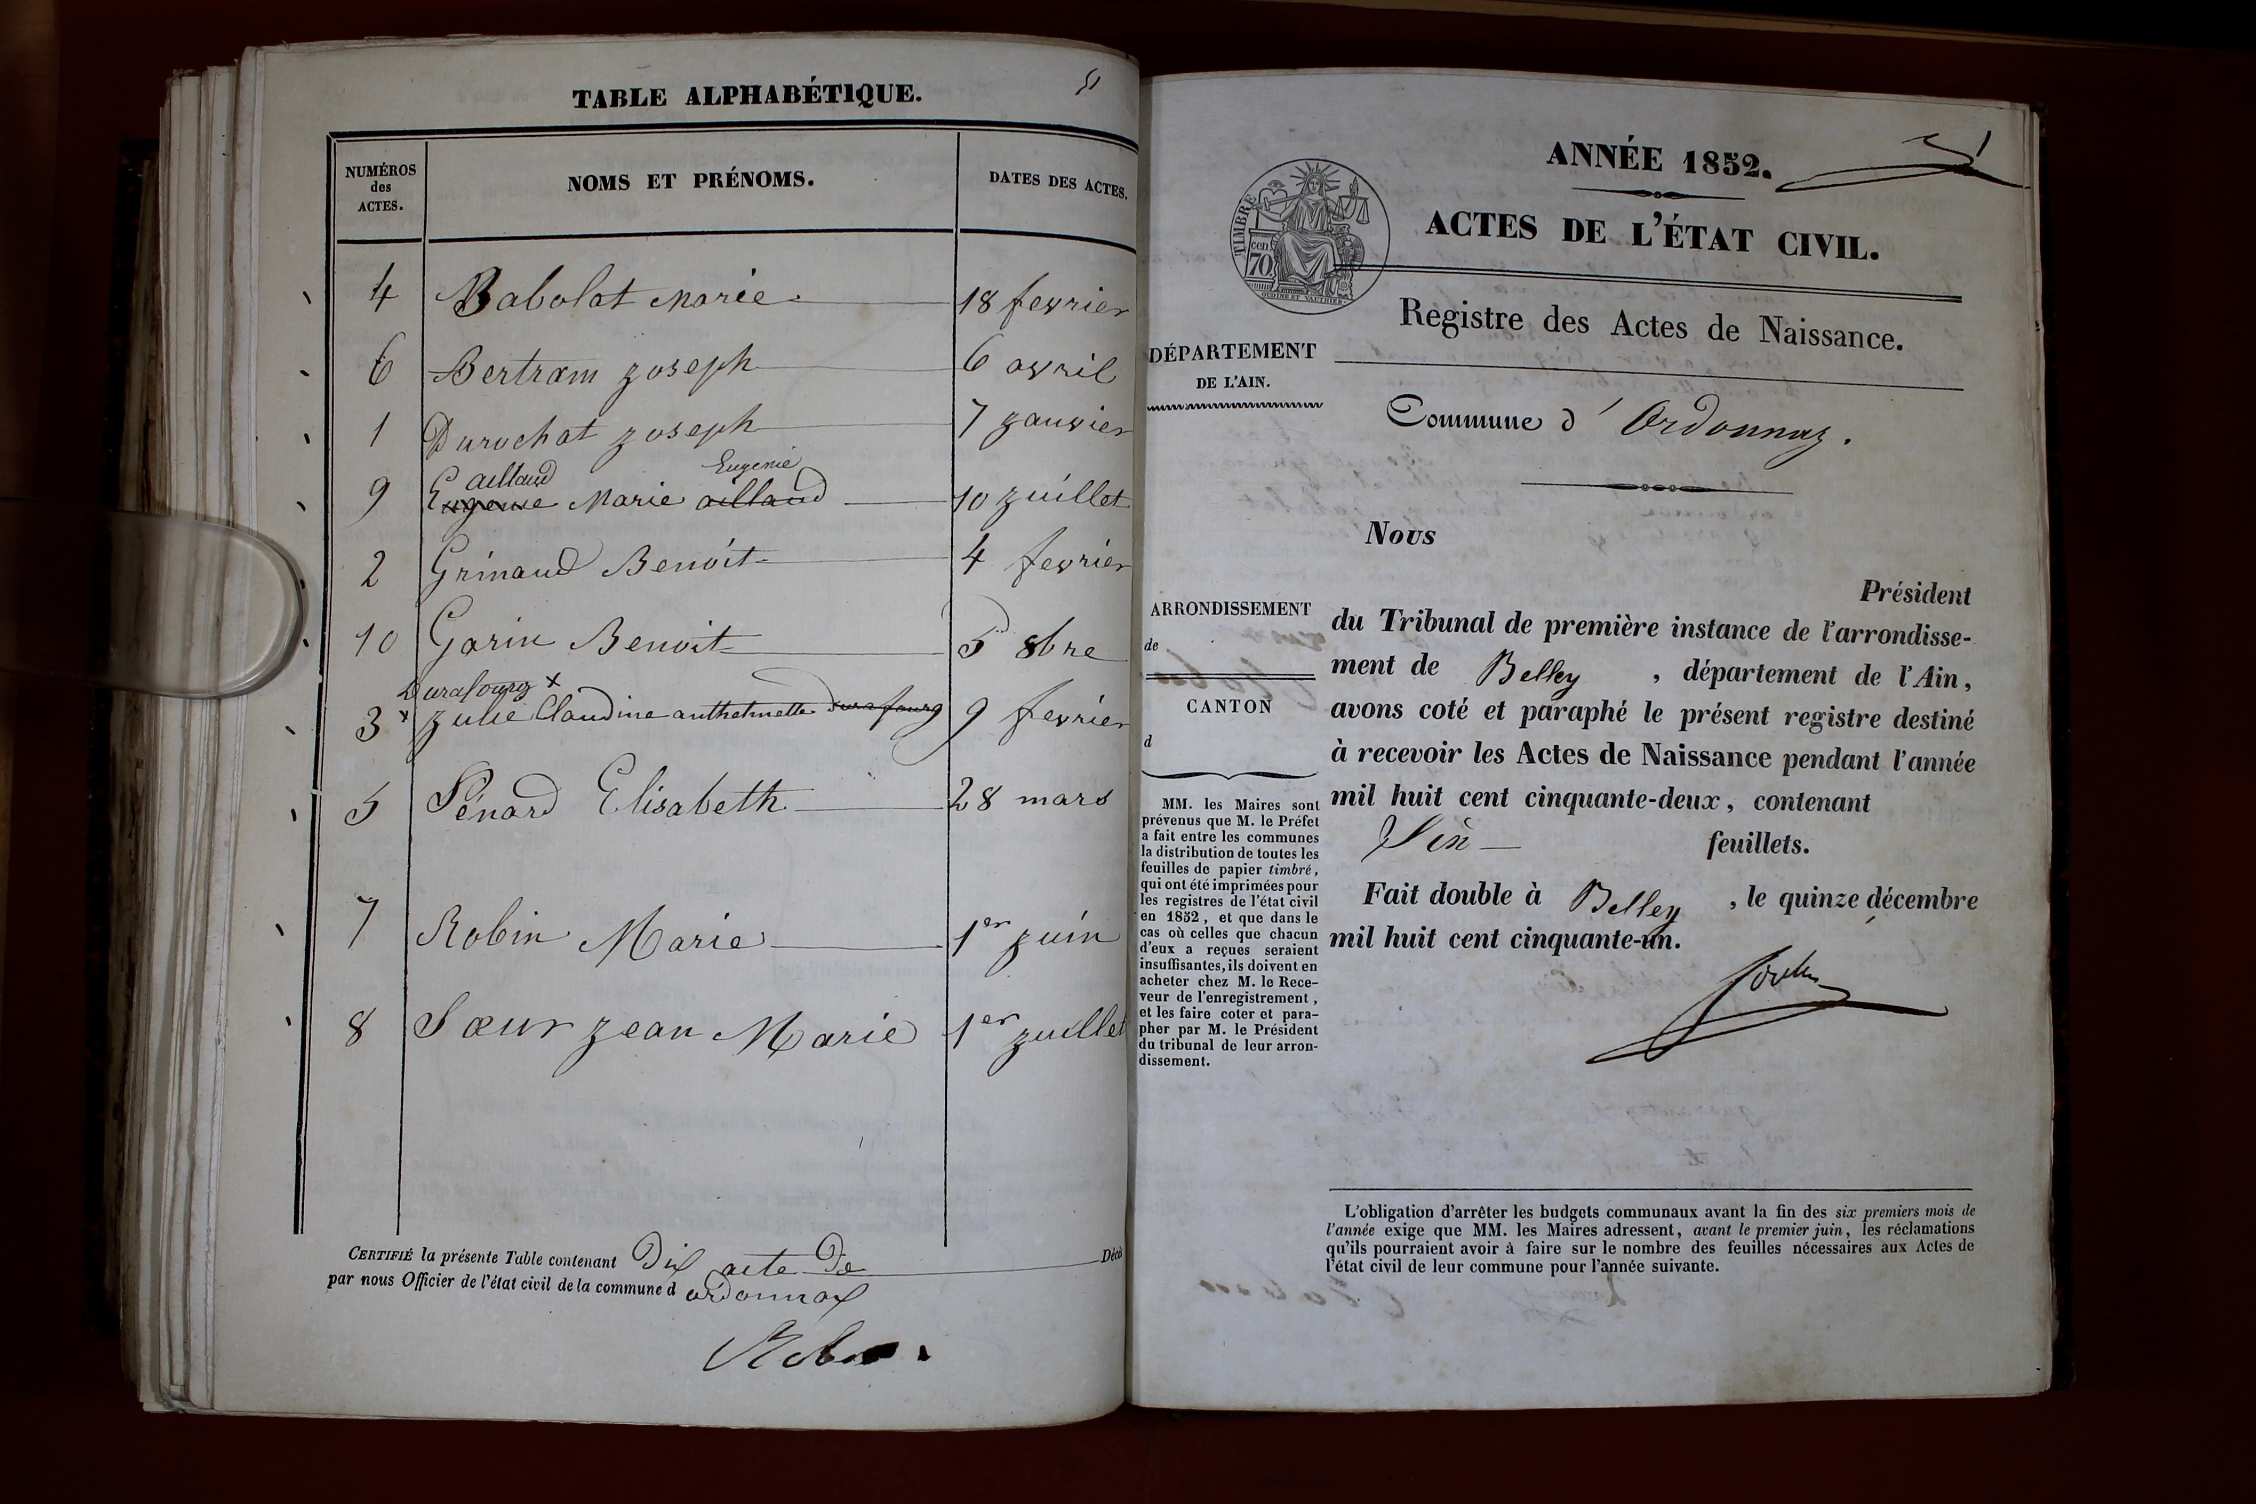 TABLE ALPHABÉTIQUE.
NUMÉROS des ACTES. NOMS ET PRÉNOMS. DATES DES ACTES.
4 Babolat Marie 18 fevrier
6 Bertram Joseph 6 avril
1 Durochat Joseph 7 janvier
aillaud Eugenie
9 Eugenie Marie aillaud 10 juillet
2 Grinaud Benoit 4 fevrier
10 Garin Benoit 5 8bre
Durafourg x
3 x Julie Claudine anthelmette durafourg 9 fevrier
5 Pénard Elisabeth 28 mars
7 Robin Marie 1er juin
8 Sœur Jean Marie 1er juillet
CERTIFIÉ la présente Table contenant Dix acte De Décè
par nous Officier de l'état civil de la commune d ordonnax
ANNÉE 1852.
TIMBRE
cen. 70
ACTES DE L'ÉTAT CIVIL.
Registre des Actes de Naissance.
DÉPARTEMENT
DE L'AIN.
Commune d' Ordonnaz.
Nous
Président
du Tribunal de première instance de l'arrondisse-
ment de Belley , département de l'Ain,
avons coté et paraphé le présent registre destiné
à recevoir les Actes de Naissance pendant l'année
mil huit cent cinquante-deux, contenant
feuillets.
Fait double à Belley , le quinze décembre
mil huit cent cinquante-un.
ARRONDISSEMENT
de
CANTON
d
MM. les Maires sont
prévenus que M. le Préfet
a fait entre les communes
la distribution de toutes les
feuilles de papier timbré,
qui ont été imprimées pour
les registres de l'état civil
en 1852, et que dans le
cas où celles que chacun
d'eux a reçues seraient
insuffisantes, ils doivent en
acheter chez M. le Rece-
veur de l'enregistrement,
et les faire coter et para-
pher par M. le Président
du tribunal de leur arron-
dissement.
L'obligation d'arrêter les budgets communaux avant la fin des six premiers mois de
l'année exige que MM. les Maires adressent, avant le premier juin, les réclamations
qu'ils pourraient avoir à faire sur le nombre des feuilles nécessaires aux Actes de
l'état civil de leur commune pour l'année suivante.